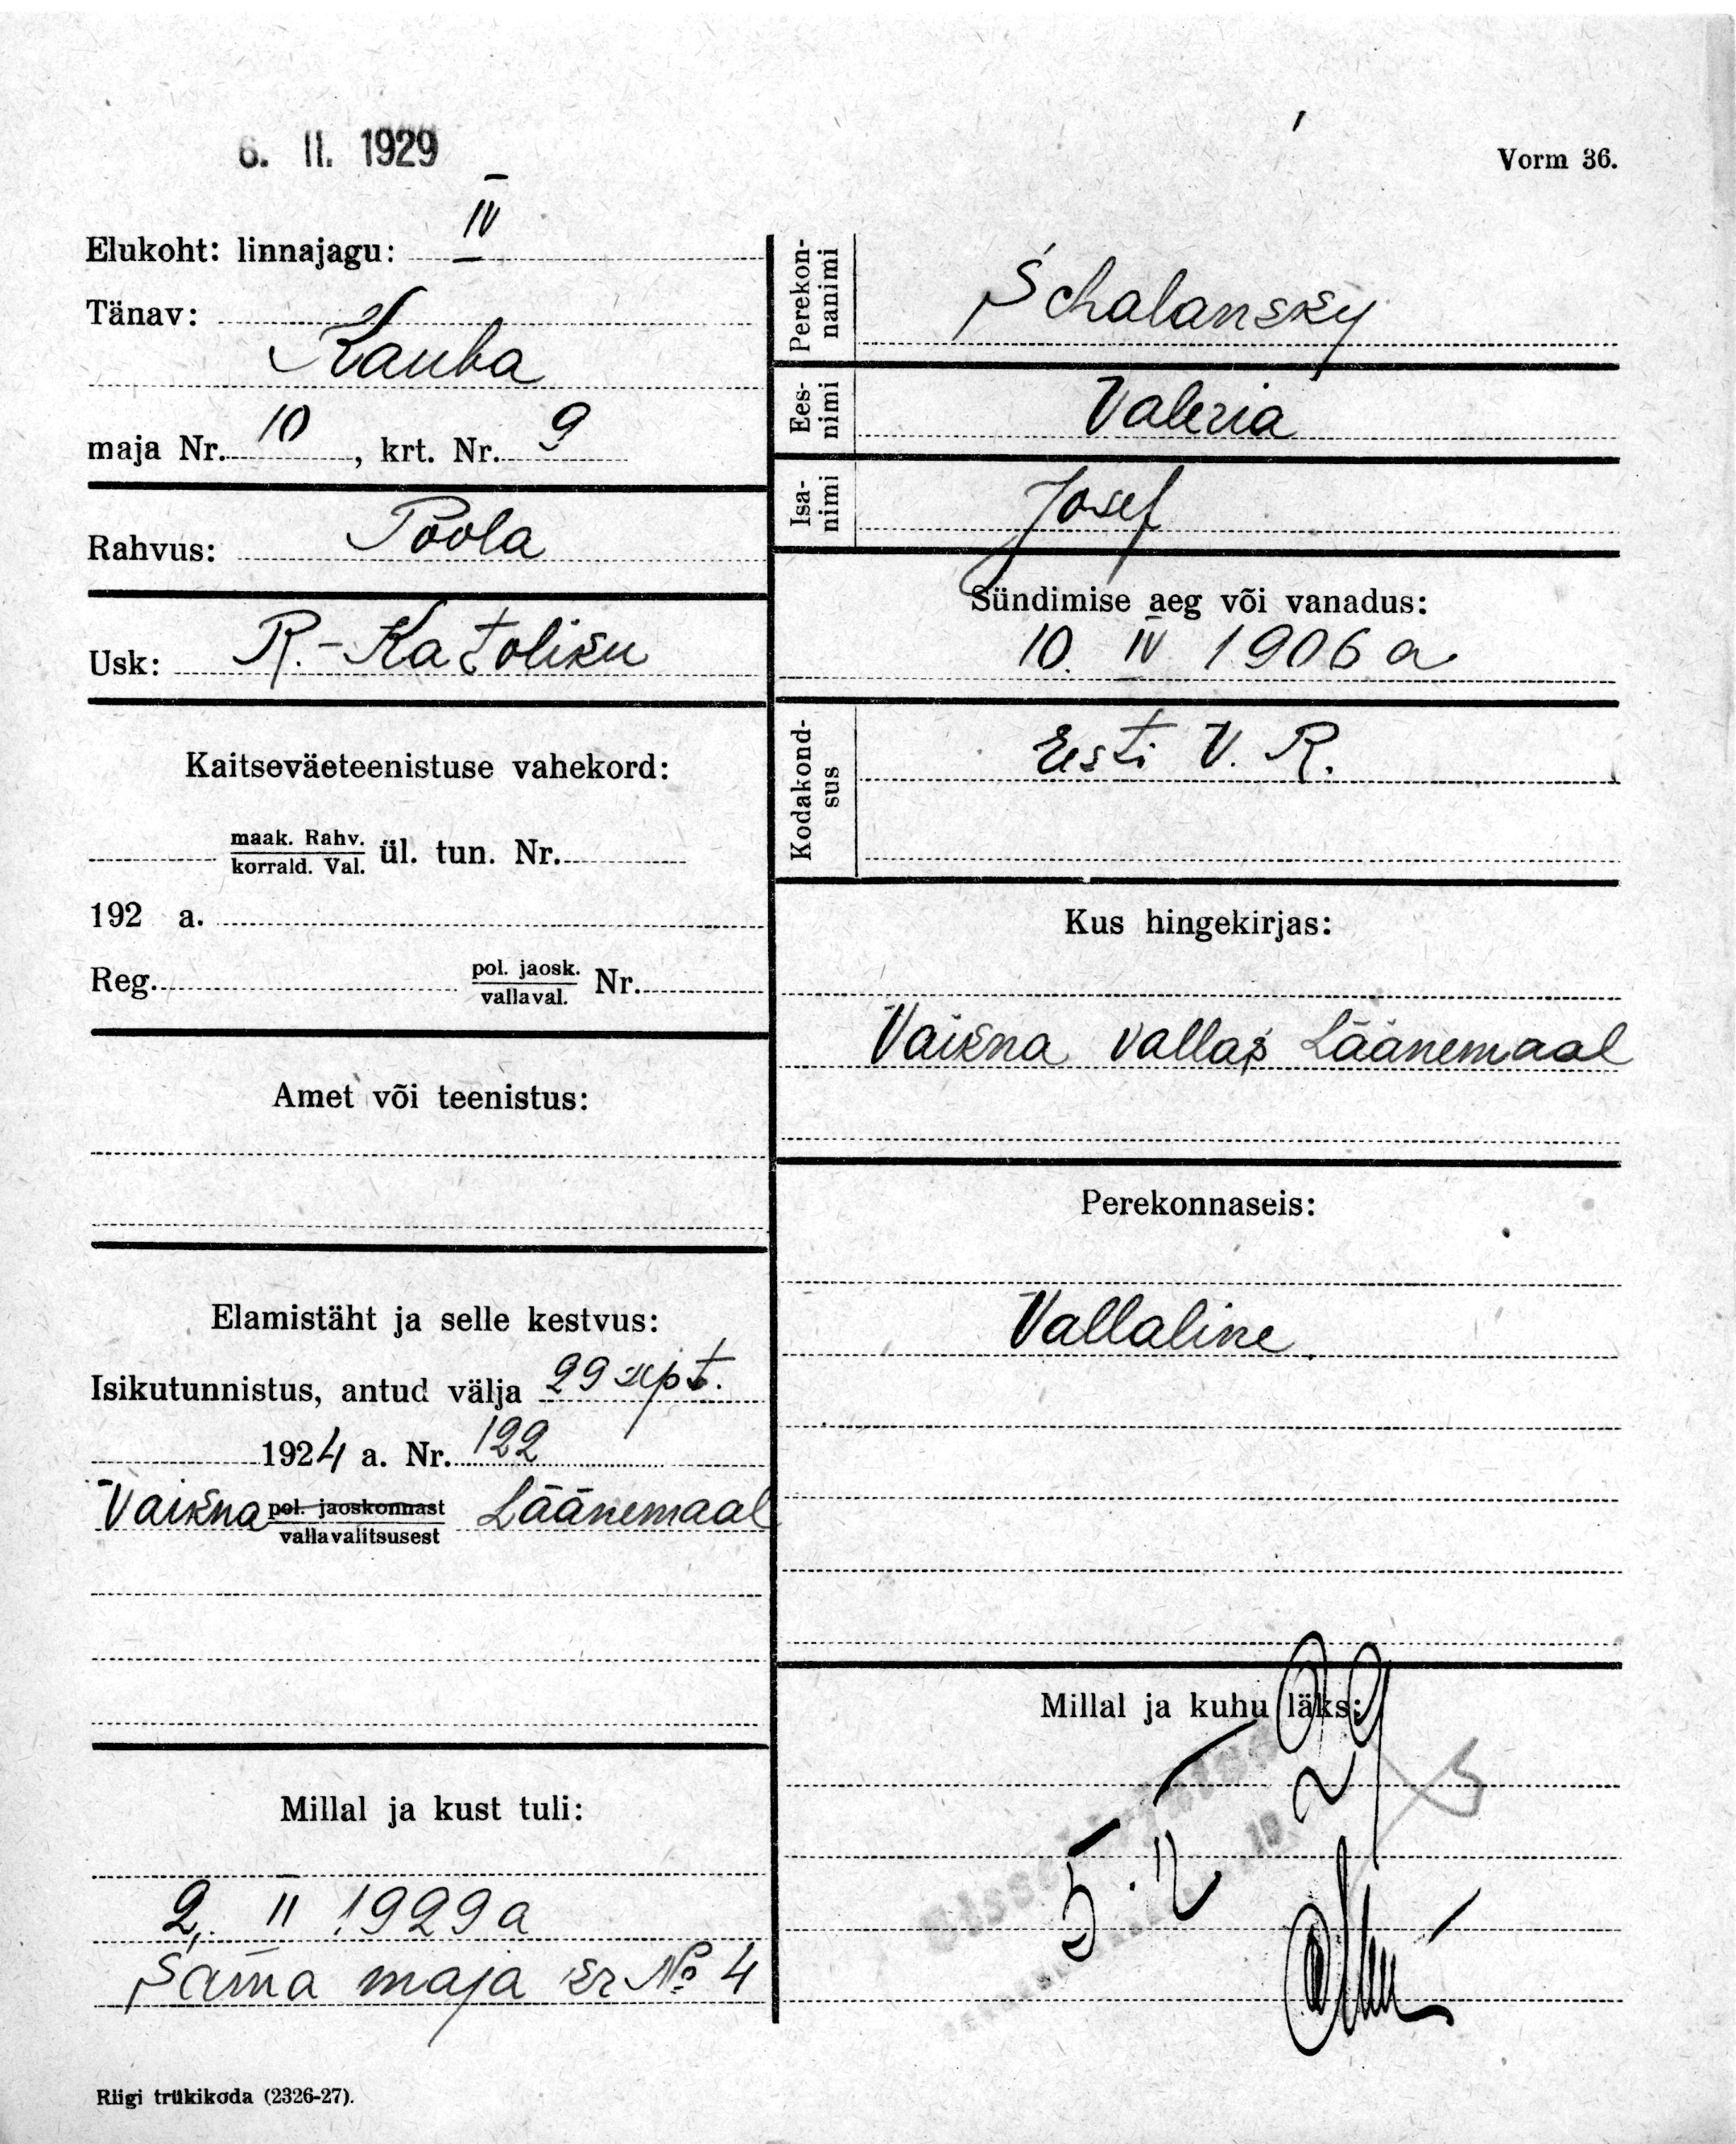 6. II. 1929
Vorm 36.
Elukoht: linnajagu: IV
Tänav:
Kauba
maja Nr. 10, krt. Nr. 9
Rahvus: Poola
Usk: R.-Katoliku
Kaitseväeteenistuse vahekord:
maak. Rahv.
korrald. Val.
ül. tun. Nr.
192 a.
Reg. pol. jaosk. Nr.
vallaval.
Amet või teenistus:
Elamistäht ja selle kestvus:
Isikutunnistus, antud välja 29 sept.
1924 a. Nr. 122
Vaikna pol. jaoskonnast Läänemaal
vallavalitsusest
Millal ja kust tuli:
2. II 1929 a
Sama maja kr № 4
Riigi trükikoda (2326-27).
Perekon-
nanimi
Schalansky
Ees-
nimi
Valeria
Isa-
nimi
Josef
Sündimise aeg või vanadus:
10. IV 1906 a
Kodakond-
sus
Eesti V. R.
Kus hingekirjas:
Vaikna vallas Läänemaal
Perekonnaseis:
Vallaline
Millal ja kuhu läks:
Sissekirjutud
5. II 29